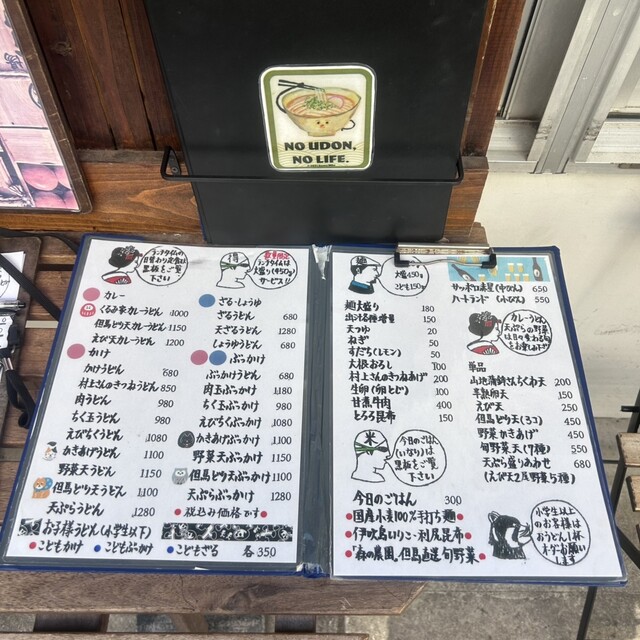 NO UDON,
NO LIFE.
ランチタイムの
日替わり定食は
黒板をご覧
下さい
得
数量限定
ランチタイムは
大盛り(450g)
サービス!!
カレー
くるみ家カレーうどん 1000
但馬どり天カレーうどん 1150
えび天カレーうどん 1200
かけ
かけうどん 680
村上さんのきつねうどん 850
肉うどん 980
ちく玉うどん 980
えびちくうどん 1080
かきあげうどん 1100
野菜天うどん 1150
但馬どり天うどん 1100
天ぷらうどん 1280
ざる・しょうゆ
ざるうどん 680
天ざるうどん 1280
しょうゆうどん 680
ぶっかけ
ぶっかけうどん 680
肉玉ぶっかけ 1180
ちく玉ぶっかけ 980
えびちくぶっかけ 1080
かきあげぶっかけ 1100
野菜天ぶっかけ 1150
但馬どり天ぶっかけ 1100
天ぷらぶっかけ 1280
税込み価格です
お子様うどん(小学生以下)
こどもかけ こどもぶっかけ こどもざる 各350
麺
大盛450g
こども150g
麺大盛り 180
出汁各種増量 150
天つゆ 20
ねぎ 50
すだち(レモン) 50
大根おろし 100
村上さんのきつねあげ 200
生卵(卵とじ) 100
甘煮牛肉 400
とろろ昆布 150
米
今日のごはん
(いなり)は
黒板をご覧
下さい
今日のごはん 300
国産小麦100%手打ち麺
伊吹島いりこ・利尻昆布
「森の農園」但馬直送旬野菜
サッポロ赤星(中びん) 650
ハートランド(小びん) 550
カレーうどん
天ぷらの野菜
は日々変わる旬
をお楽しみ下さい
単品
山地蒲鉾さんちくわ天 200
半熟卵天 150
えび天 250
但馬どり天(3コ) 450
野菜かきあげ 450
旬野菜天(7種) 550
天ぷら盛りあわせ 680
(えび天2尾野菜5種)
小学生以上
のお客様は
おうどん1杯
オーダーお願い
します